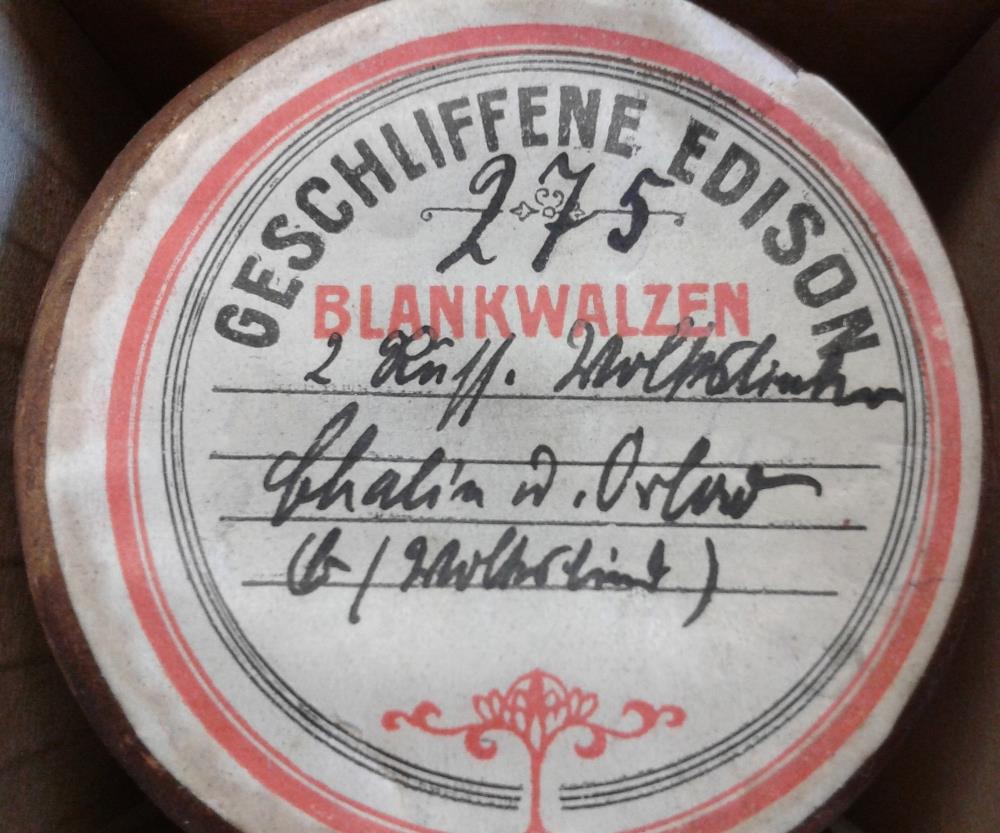 GESCHLIFFENE EDISON
275
BLANKWALZEN
2 Russ. Volkslieder
u. Orlow
(b / Volkslied)